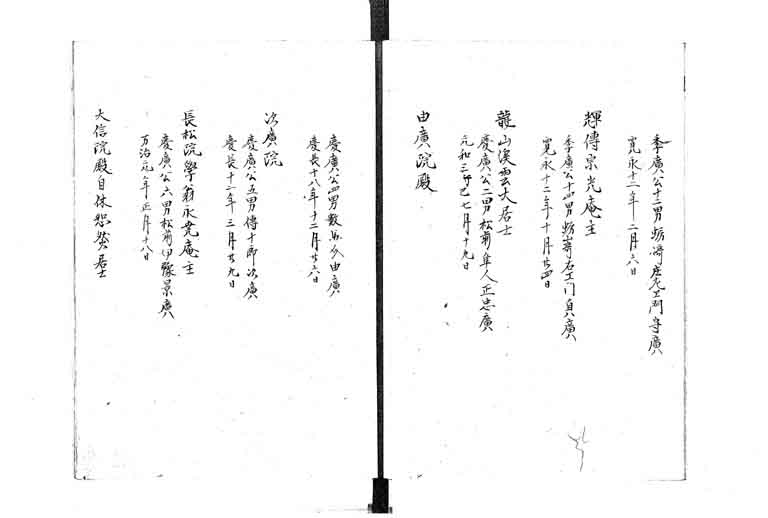 季廣公十三男蛎崎庄左エ門守廣
寛永十二年二月六日
輝傳宗光庵主
季廣公十四男蛎崎右エ門貞廣
寛永十二年十月廿四日
龍山溪雲大居士
慶廣公二男松前隼人正忠廣
元和三丁巳七月十九日
由廣院殿
慶廣公四男数馬介由廣
慶長十八年十二月廿六日
次廣院
慶廣公五男傳十郎次廣
慶長十二年三月廿九日
長松院學翁永覚庵主
慶廣公六男松前伊豫景廣
万治元年正月十八日
大信院殿自休居士